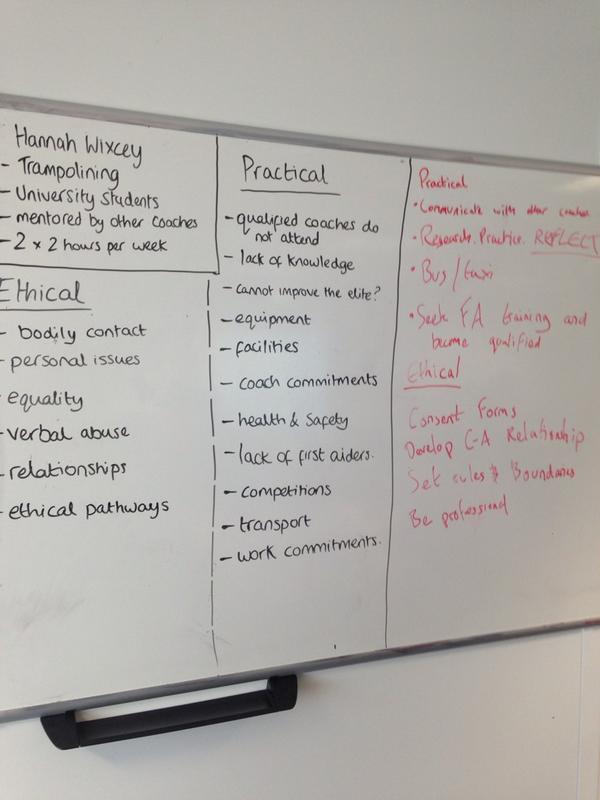 Hannah Wixcey
- Trampolining
- University students
- mentored by other coaches
- 2 x 2 hours per week
Ethical
- bodily contact
- personal issues
- equality
- verbal abuse
- relationships
- ethical pathways
Practical
- qualified coaches do
not attend
- lack of knowledge
- cannot improve the elite?
- equipment
- facilities
- coach commitments
- health & safety
- lack of first aiders.
- competitions
- transport
- work commitments.
Practical
• Communicate with other coaches
• Research. Practice. REFLECT
• Bus / taxi
• Seek FA training and
become qualified
Ethical
Consent Forms
Develop C-A Relationship
Set rules & Boundaries
Be professional